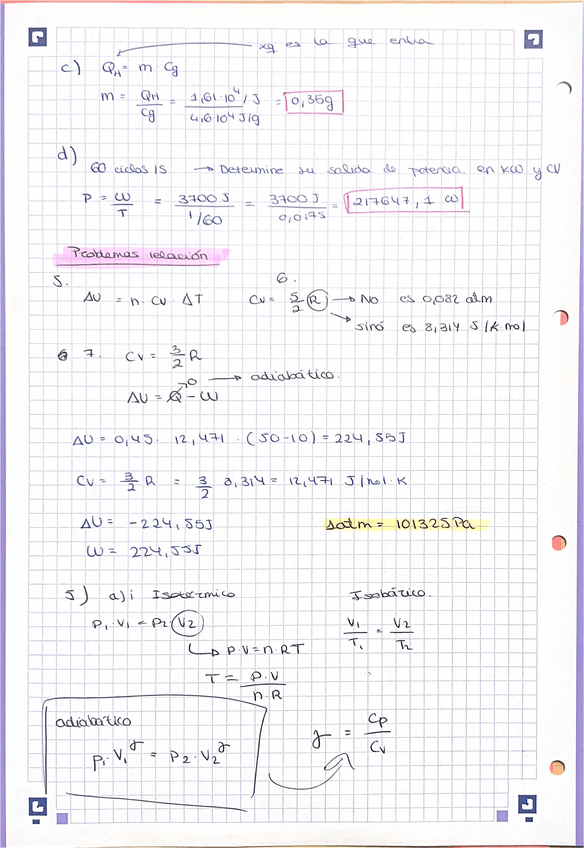 xq es la que entra
c) Q_H = m · Cg
m = Q_H / Cg = 1,61·10⁴ / J / 4,6·10⁴ J/g = 0,35g
d)
60 ciclos /S → Determine su salida de potencia. en KW y CV
P = W / T = 3700 J / 1/60 = 3700 J / 0,0175 = 217647,1 W
Problemas relación
5. 6.
ΔU = n · Cv · ΔT Cv = 5/2 R → No es 0,082 atm
→ sinó es 8,314 J/K·mol
7. Cv = 3/2 R
ΔU = Q→0 - W → adiabático.
ΔU = 0,45 · 12,471 · (50-10) = 224,55J
Cv = 3/2 R = 3/2 8,314 = 12,471 J/mol·K
ΔU = -224,55J 1atm = 101325 Pa
W = 224,55J
5) a) i Isotérmico Isobárico.
P₁·V₁ = P₂·V₂ V₁/T₁ = V₂/T₂
↳ P·V = n·RT
T = P·V / n·R
adiabático γ = Cp / Cv
P₁·V₁^γ = P₂·V₂^γ